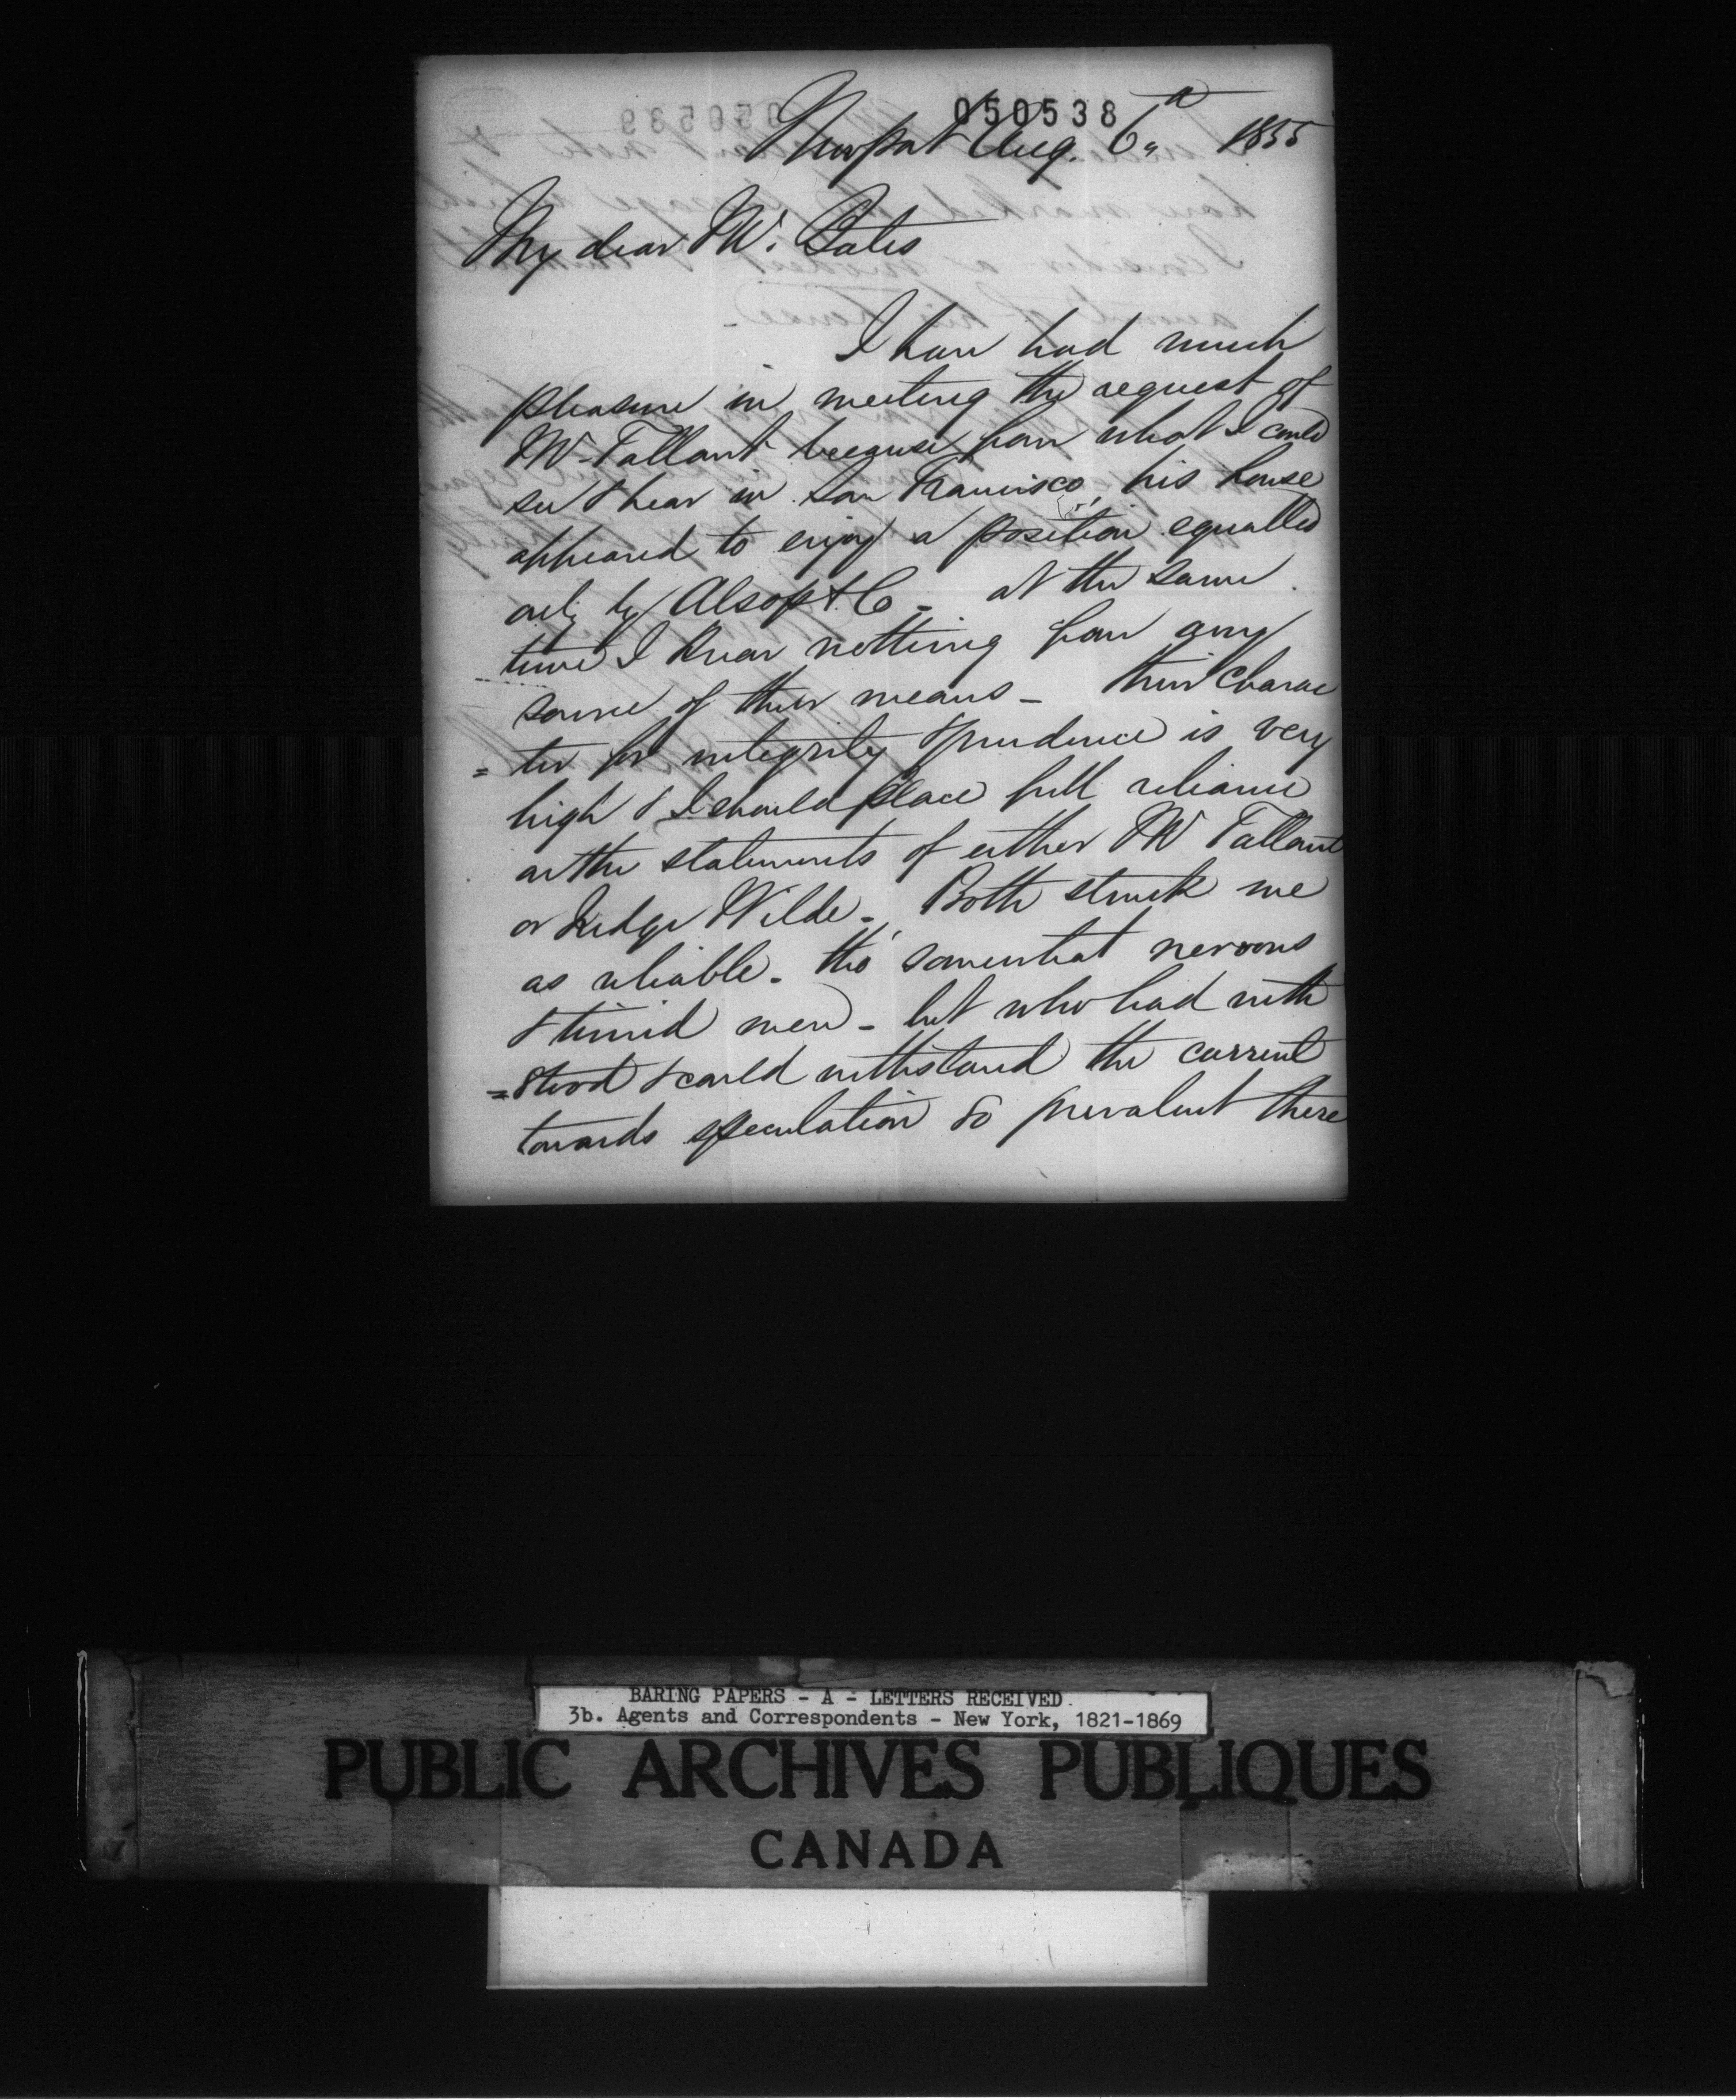 050538
Newport Aug. 6th 1855
My dear Mr. Bates
I have had much
pleasure in meeting the request of
Mr Tallant because from what I could
see & hear in San Francisco, his house
appeared to enjoy a position equalled
only by Alsop & Co - at the same
time I know nothing from any
source of their means - their charac
=ter for integrity & prudence is very
high & I should place full reliance
on the statements of either Mr Tallant
or Judge Wilde - Both struck me
as reliable - tho' somewhat nervous
& timid men - but who had with
=stood & could withstand the current
towards speculation so prevalent there
BARING PAPERS - A - LETTERS RECEIVED
3b. Agents and Correspondents - New York, 1821-1869
PUBLIC ARCHIVES PUBLIQUES
CANADA